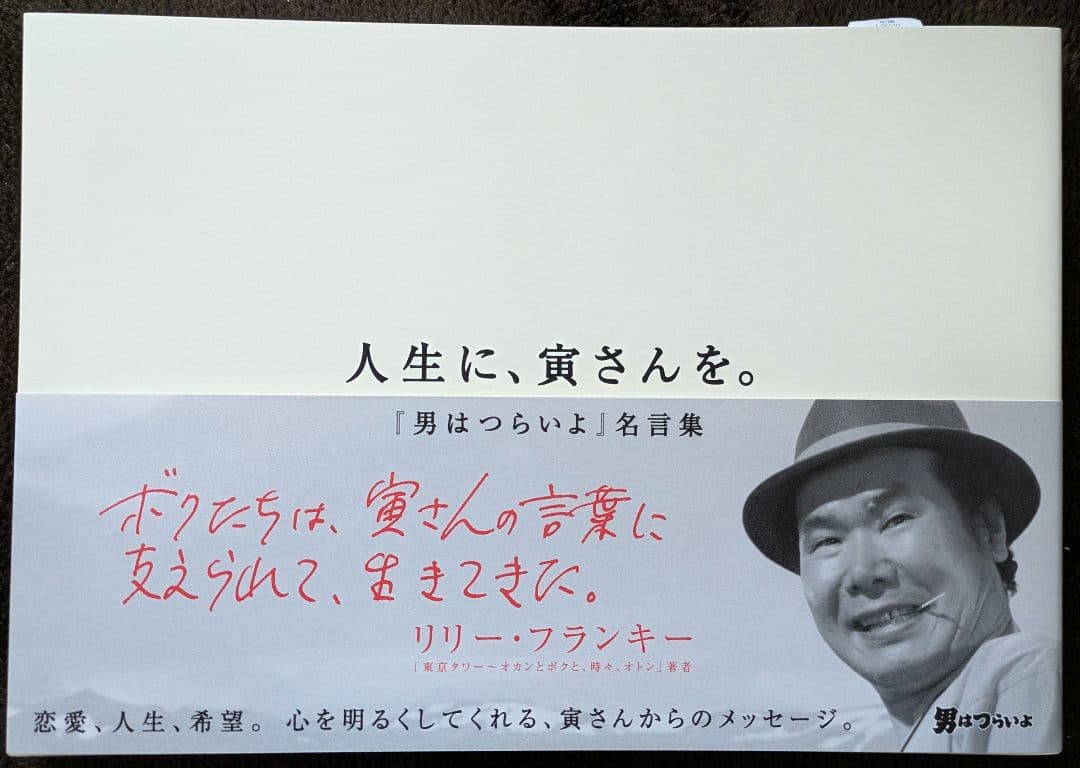 人生に、寅さんを。
『男はつらいよ』名言集
ボクたちは、寅さんの言葉に
支えられて、生きてきた。
リリー・フランキー
「東京タワー〜オカンとボクと、時々、オトン」著者
恋愛、人生、希望。 心を明るくしてくれる、寅さんからのメッセージ。
男はつらいよ